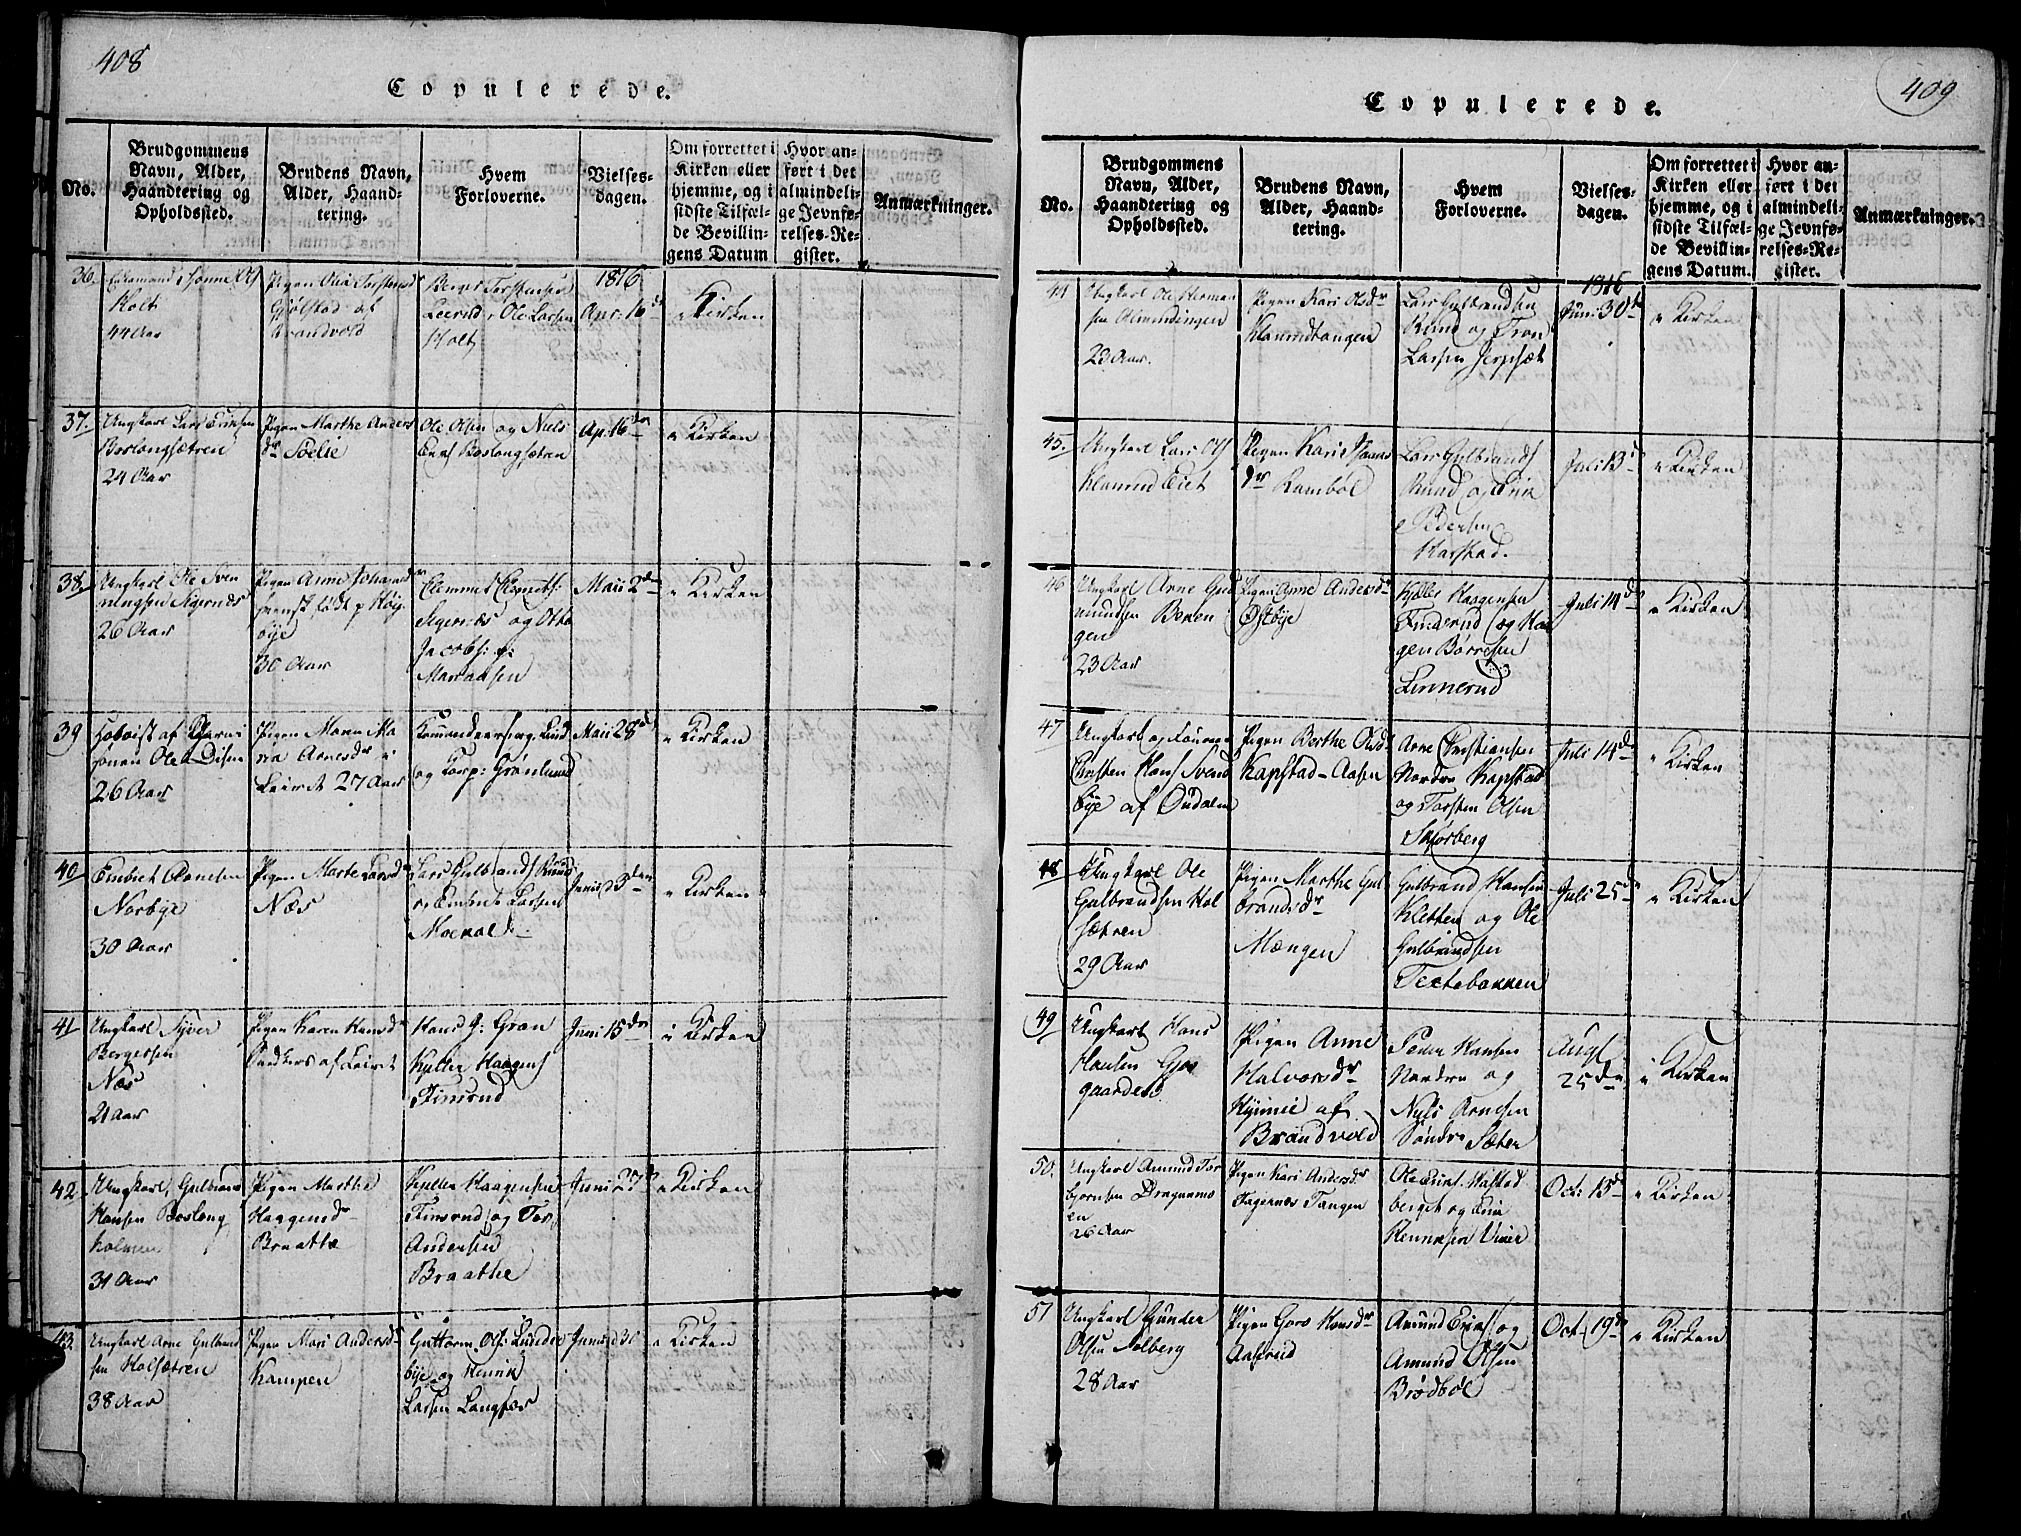 408
Copulerede.
No.
Brudgommens
Navn, Alder,
Haandtering og
Opholdssted.
Brudens Navn,
Alder, Haand-
tering.
Hvem
Forloverne.
Vielses-
dagen.
Om forrettet i
Kirken eller
hjemme, og i
sidste Tilfæl-
de Bevillin-
gens Datum
Hvor an-
ført i det
almindeli-
ge Jevnfø-
relses-Re-
gister.
Anmærkninger.
36.
Holt
44 Aar
Pigen Olia Torstensd
Gjølstad af
Brandvold
Berger Torstensen
Leerud, Ole Larsen
Holt
1816
Apr: 16d
i Kirken
37.
Ungkarl Lars Erichsen
Boslangsætren
24 Aar
Pigen Marthe Anders
dr Sælie
Ole Olsen og Niels
Ens Boslangsætren
Ap: 16den
i Kirken
38.
Ungkarl Ole Sven
ningsen Sigernæs
26 Aar
Pigen Anne Johannesd
svensk født p Høy
øye
30 Aar
Clemmet Clemets:
Sigernæs og Otto
Jacobs: p:
Maraasen
Maii 2den
i Kirken
39
Hoboist af Garni
sonen Ole Disen
26 Aar
Pigen Maren Ma
ria Arnesdr i
Leiret 27 Aar
Kommandeerserg. Lund
og Corp: Grønlund
Maii 28d
i Kirken
40
Embret Arnesen
Norbye
30 Aar
Pigen Marte Larsd
Næs
Lars Gulbrands Rund
og Embret Larsen
Moevold
Junii 3den
i Kirken
41
Ungkarl Syver
Bergersen
Næs
21 Aar
Pigen Karen Hansdr
Sandkers af Leiret
Hans J: Gran
Kjeller Haagens
Finsrud
Juni 15den
i Kirken
42
Ungkarl Gulbrand
Hansen Boslang
holmen
31 Aar
Pigen Marthe
Haagensdr
Braatte
Kjeller Haagensen
Finsrud og Tor
Andersen
Braathe
Juni 27d
i Kirken
43.
Ungkarl Arne Gulbrand
sen Kolsætren
38 Aar
Pigen Mari Andersdr
Kampen
Guttorm Ols: Lunder
bye og Henrik
Larsen Langfos
Junii 30
i Kirken
409
Copulerede.
No.
Brudgommens
Navn, Alder,
Haandtering og
Opholdssted.
Brudens Navn,
Alder, Haand-
tering.
Hvem
Forloverne.
Vielses-
dagen.
Om forrettet i
Kirken eller
hjemme, og i
sidste Tilfæl-
de Bevillin-
gens Datum.
Hvor an-
ført i det
almindeli-
ge Jevnfø-
relses-Re-
gister.
Anmærkninger.
44
Ungkarl Ole Herman
sen Almindingen
23 Aar.
Pigen Kari Olsdr
Klanrudtangen
Lars Gulbrandsen
Rund og Tron
Larsen Jerpset
1816
Juni 30d
i Kirken
45.
Ungkarl Lars Ols
Klanrud Eiet
Pigen Kari
dr Rambøl
Lars Gulbrands
Rund og Erik
Pedersen
Harstad.
Juli 13d
i Kirken
46
Ungkarl Arne Gud
mundsen Beren
gen
23 Aar
Pigen Anne Andersdr
Østbye
Kjeller Haagensen
Finsrud og Haa
gen Børresen
Linnerud
Juli 14d
i Kirken
47
Christen Hans Svend
bye af Oudalen
Pigen Berthe Olsd
Kapstad-Aasen
Arne Christiansen
Nordre Kapstad
og Torsten Olsen
Skjørberg
Juli 14d
i Kirken
48
Ungkarl Ole
Gulbrandsen Kol
sætren
29 Aar
Pigen Marthe Gul
brandsdr
Mængen
Gulbrand Hansen
Kletten og Ole
Gulbrandsen
Textebakken
Juli 25d
i Kirken
49
Ungkarl Hans
Hansen Gjes
gaarden
Pigen Anne
Halvorsdr
Kymie af
Brandvold
Peder Hansen
Nordre og
Nyls Arnesen
Søndre Sæter
Augs
25d
i Kirken
50.
Ungkarl Amund Tor
bjørnsen Dragonmo
en
26 Aar
Pigen Kari Andersdr
Sigernes Tangen
Ole Erics: Mastad
berget og Erik
Hennisen Viker
Oct: 13d
i Kirken
51
Ungkarl Gunder
Olsen Solberg
28 Aar
Pigen Goro Hansdr
Aaserud
Amund Erics og
Amund Olsen
Brødbøl
Oct: 19d
i Kirken